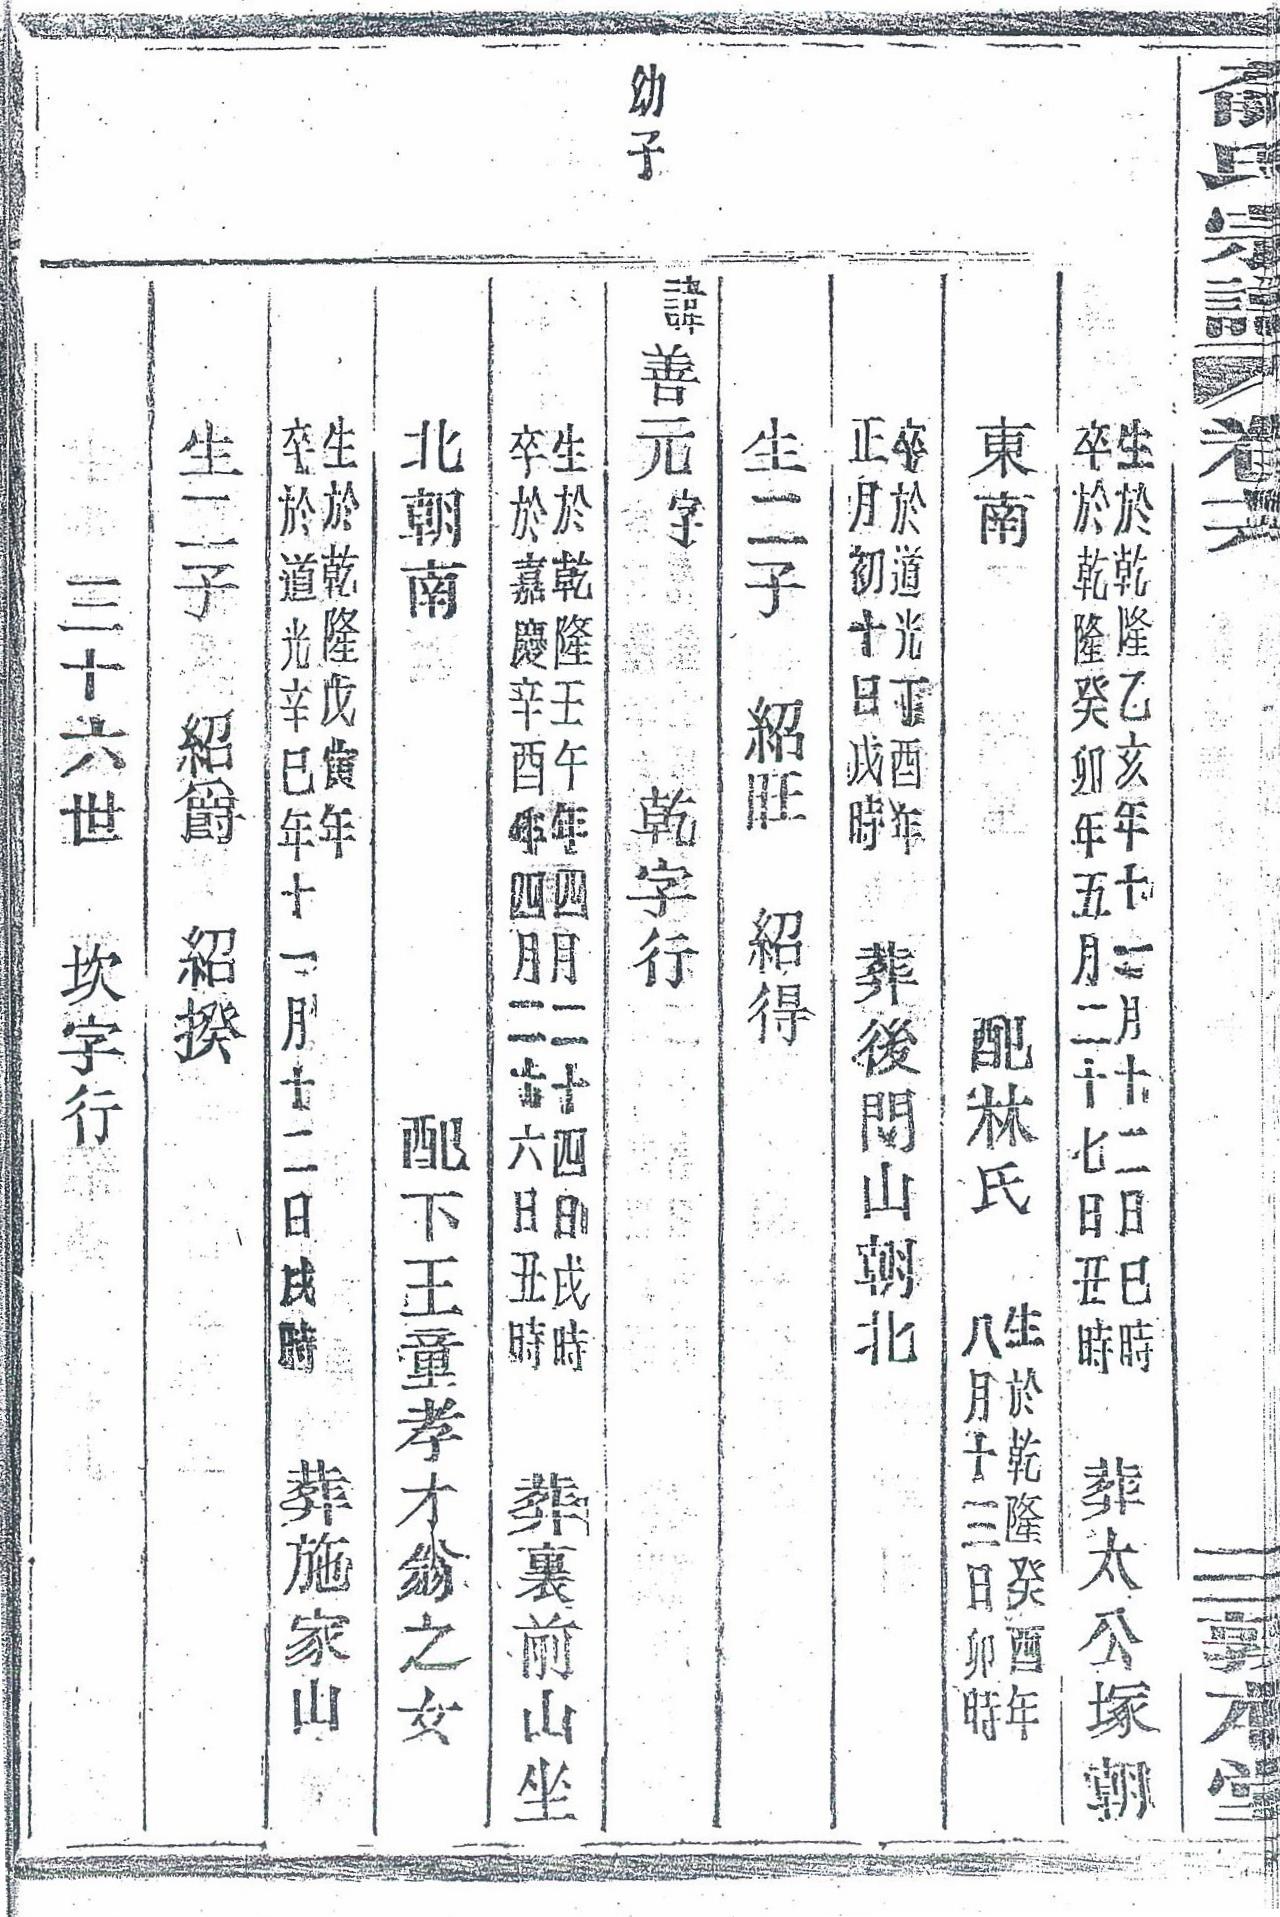 俞氏宗譜 卷六 三 敦本堂
生於乾隆乙亥年十一月十二日巳時
卒於乾隆癸卯年五月二十七日丑時
葬太公塚朝
東南 配林氏
生於乾隆癸酉年
八月十三日卯時
卒於道光丁酉年
正月初十日戌時
葬後門山朝北
生二子 紹旺 紹得
幼子
諱善元字 乾字行
生於乾隆壬午年四月二十四日戌時
卒於嘉慶辛酉年四月二十六日丑時
葬裏前山坐
北朝南 配下王童孝才翁之女
生於乾隆戊寅年
卒於道光辛巳年十一月十二日戌時
葬施家山
生二子 紹爵 紹揆
三十六世 坎字行